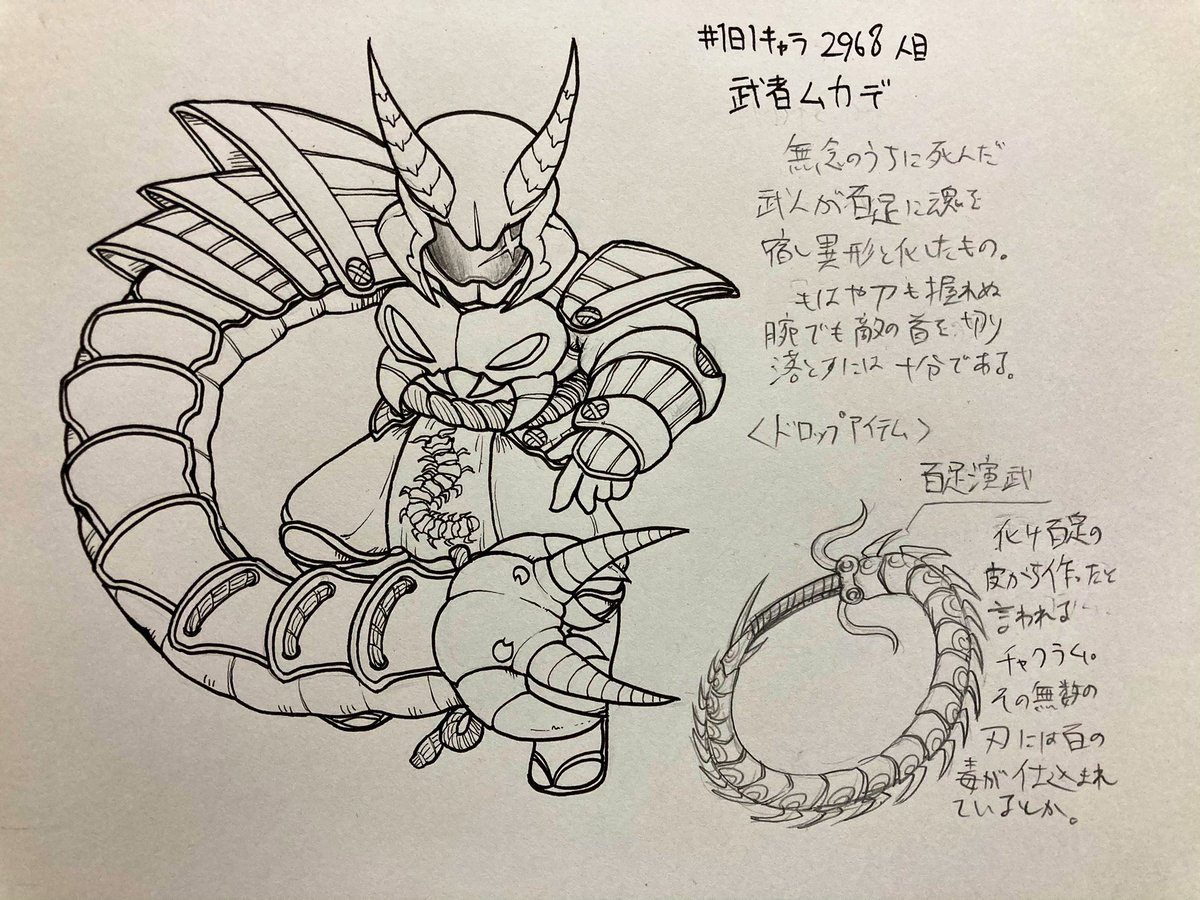 #1日1キャラ 2968人目
武者ムカデ
無念のうちに死んだ
武人が百足に魂を
宿し異形と化したもの。
もはや刀も握れぬ
腕でも敵の首を切り
落とすには十分である。
<ドロップアイテム>
百足演武
化け百足の
皮から作ったと
言われる
チャクラム。
その無数の
刃には百の
毒が仕込まれ
ているとか。